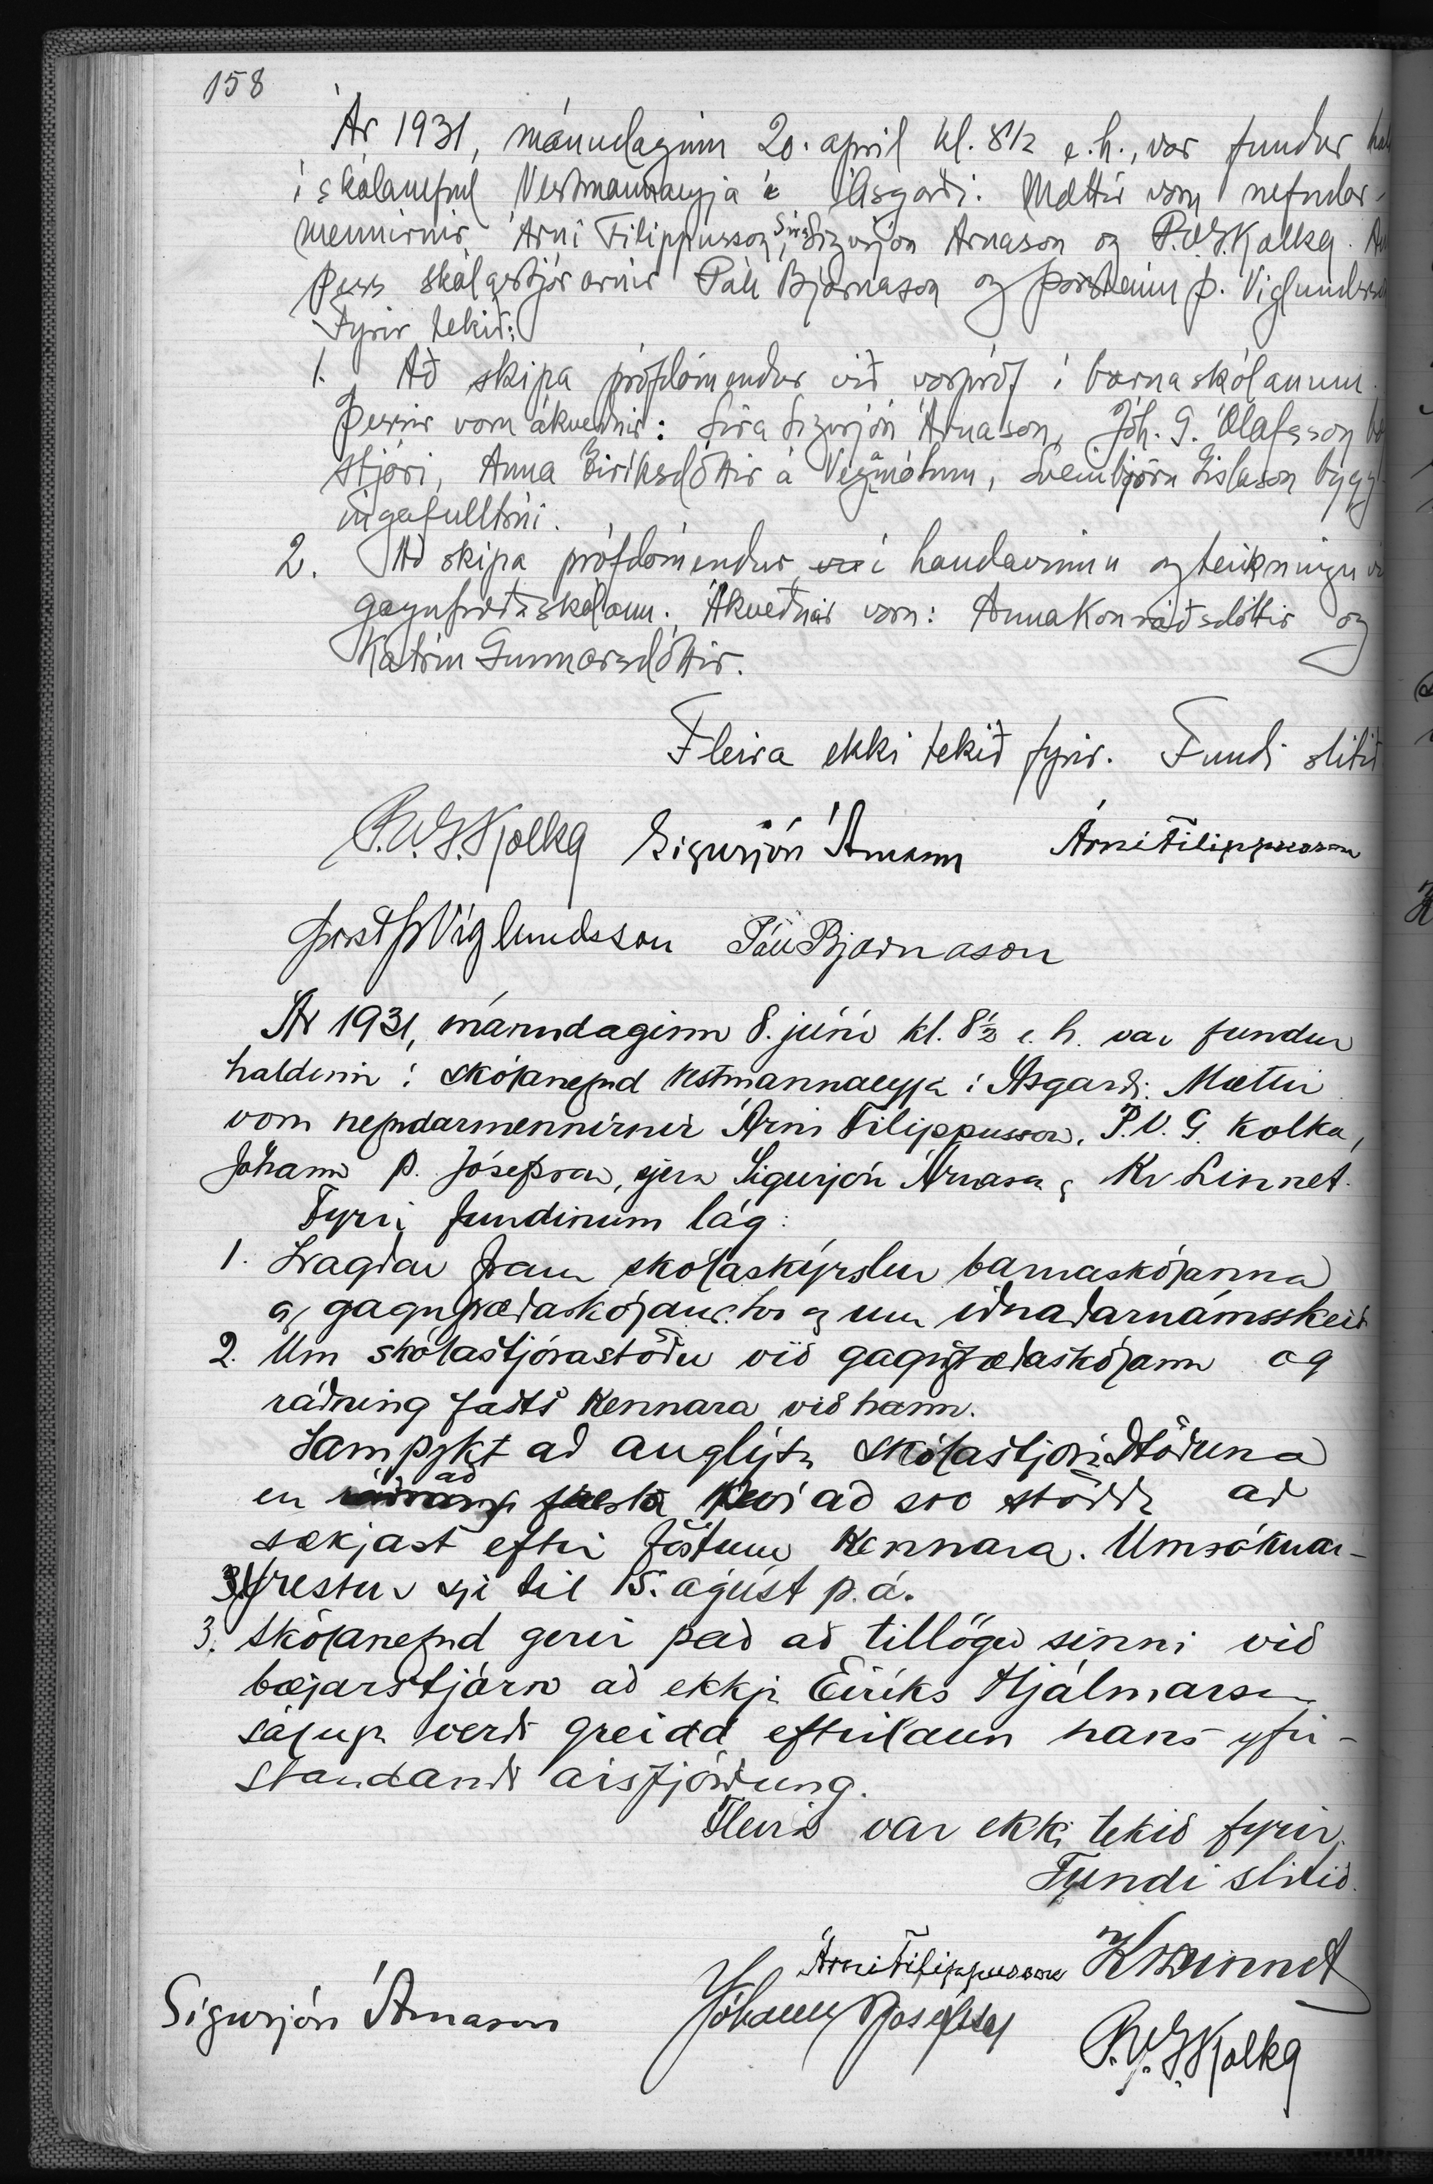 158
Ár 1931, mánudaginn 20. apríl kl. 8 1/2 e.h., var fundur
í skólanefnd Vestmannaeyja í Ásgarði. Mættir voru nefndar-
mennirnir Árni Filippusson, síra Sigurjón Árnason og P.V.G. Kolka.
þess skólastjórarnir Páll Bjarnason og Þorsteinn Þ. Víglundsson
Fyrir tekið:
1. Að skipa prófdómendur við vorpróf í barnaskólanum.
Þessir voru ákveðnir: Síra Sigurjón Árnason, Jóh. G. Ólafsson
stjóri, Anna Eiríksdóttir á Vegamótum, Sveinbjörn Gíslason bygg
ingafulltrúi.
2. Að skipa prófdómendur í handavinnu og teikningu
gagnfræðaskólann. Ákveðnar voru: Anna Konráðsdóttir og
Katrín Gunnarsdóttir.
Fleira ekki tekið fyrir. Fundi slitið
P.V.G. Kolka Sigurjón Árnason Árni Filippusson
Þorst Þ Víglundsson Páll Bjarnason
Ár 1931, mánudaginn 8. júní kl. 8 1/2 e.h. var fundur
haldinn í skólanefnd Vestmannaeyja í Ásgarði. Mættir
voru nefndarmennirnir Árni Filippusson, P.V.G. Kolka,
Jóhann Þ. Jósefsson, sjera Sigurjón Árnason og Kr Linnet.
Fyrir fundinum lág:
1. Lagðar fram skólaskýrslur barnaskólanna
og gagnfræðaskólans. og um iðnaðarnámsskeið
2. Um skólastjórastöðu við gagnfræðaskólann og
ráðning fasts kennara við hann.
Samþykt að auglýsa skólastjórastöðuna
en að svo stöddu að
sækjast eftir föstum kennara. Umsóknar-
frestur sje til 15. ágúst þ.á.
3. Skólanefnd gerir það að tillögu sinni við
bæjarstjórn að ekkju Eiríks Hjálmarssonar
sáluga verði greidd eftirlaun hans yfir-
standandi ársfjórðung.
Fleira var ekki tekið fyrir.
Fundi slitið.
Árni Filippusson Kr Linnet
Sigurjón Árnason Jóhann Þ Jósefsson P.V.G. Kolka